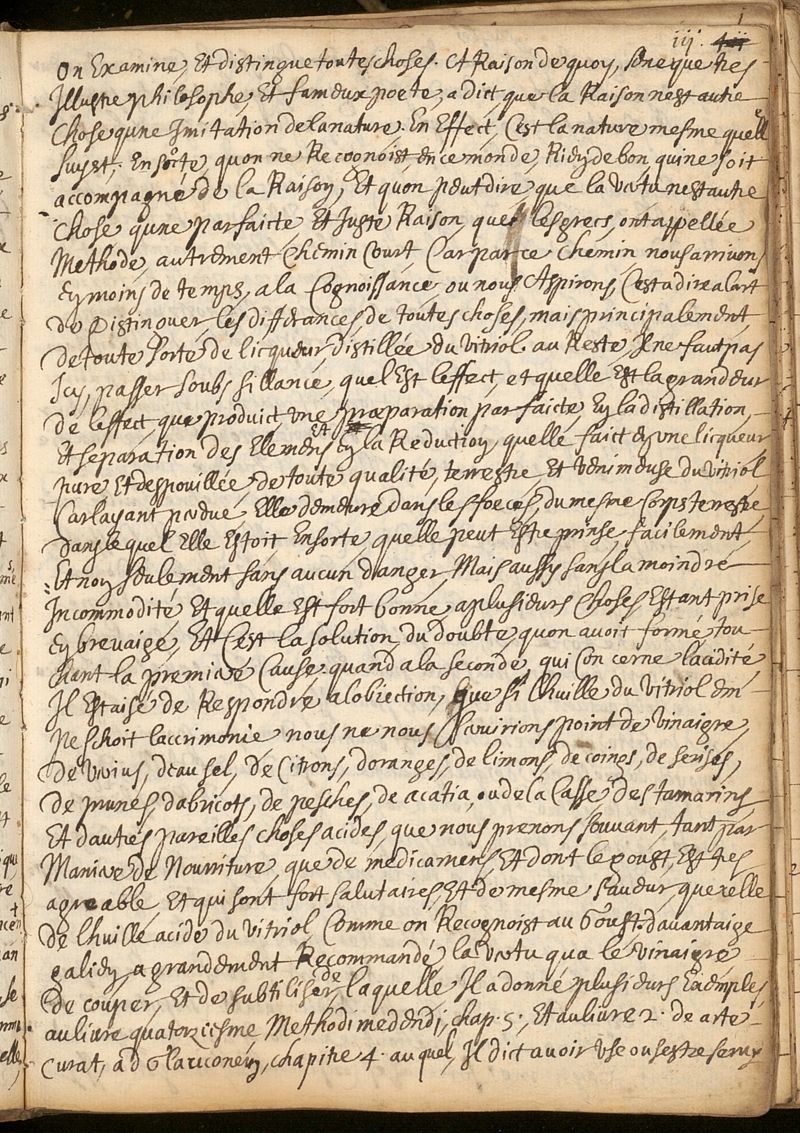 iij.
On Examine, Et distingue toutes choses. Et Raison de quoy, Seneque tres
Illustre philosophe, Et fameux poete, a dict, que la Raison nest autre
Chose qune Imitation de la nature. En Effect, Cest la nature mesme quelle
suyst, En sorte quon ne Recognoist en ce monde, Rien de bon qui ne soit
accompagné de la Raison, Et quon peut dire que la vertu nest autre
chose qune parfaicte Et Juste Raison, que les grecs, ont appellée
Methode, autrement Chemin Court, Car par ce chemin nous arrivons
En moins de temps, a la Cognoissance ou nous Aspirons, Cest a dire a lart
de Distinguer, les differances, de toutes choses, mais principalement
de toute sorte de licqueur distillée du vitriol. au Reste, Il ne faut pas
Icy, passer soubs sillance, quel Est leffect, et quelle Est la grandeur
de leffect, que produict, une præparation parfaicte, En la distillation,
Et separation des Elemens, Et En la Reduction, quelle faict en une licqueur
pure Et despouillée de toute qualité, terrestre, Et venimeuse du vitriol
Car layant perdue, Elle demeure dans les foeces, du mesme Corps terrestre
dans lequel Elle Estoit, En sorte, quelle peut Estre prinse, facilement,
Et non seulement sans aucun danger, Mais aussy sans la moindre
Incommodité, Et quelle Est fort bonne, a plusieurs choses, Estant prise
En brevaige, Et Cest la solution, du doubte, quon avoit formé, tou
chant la premiere Cause, quand a la seconde, qui Concerne lacidité,
Il Est aisé de Respondre a lobiection, que si lhuille du vitriol em
peschoit lacrimonie nous ne nous servirions point de vinaigre,
de verius, deau sel, de Citrons, doranges, de limons, de coings, de serises,
de prunes, dabricots, de pesches, de acatia, ou de la Casse, des tamarins
Et dautres pareilles choses acides, que nous prenons souvant, tant par
Maniere de Nourriture, que de medicamens, Et dont le goust, Est tres
agreable, Et qui sont fort salutaires, Et de mesme saveur, que celle
de lhuille acide du vitriol, Comme on Recognoist au Goust. davantaige
galien, a grandement Recommandé, la vertu qua le vinaigre
de couper, Et de subtiliser, de laquelle, Il a donné plusieurs Exemples
au livre quatorziesme, Methodi medendi, chap. 5. Et au livre 2. de arte
curat, ad Glauconem, chapitre 4. auquel, Il dict avoir usé ou sestre servy